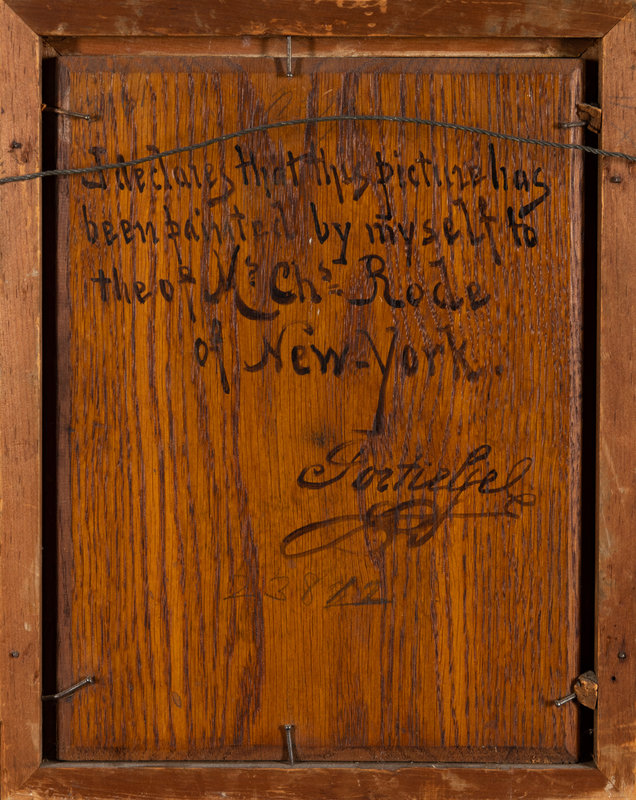 I declares that this picture has
been painted by myself to
the of Mr. Chs. Rode
of New-York.
Portielje